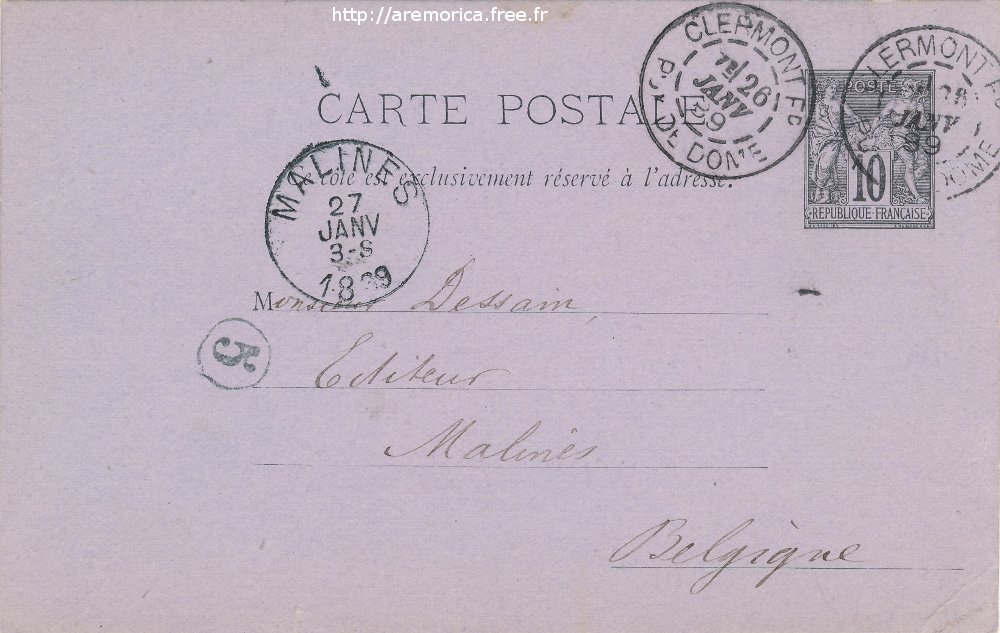 http://aremorica.free.fr
CARTE POSTALE
côté est exclusivement réservé à l'adresse.
CLERMONT-Fd
PUY-DE-DOME
7E 26
JANV
89
CLERMONT-Fd
JANV
89
DOME
POSTE
10
REPUBLIQUE FRANÇAISE
MALINES
27
JANV
3-S
1889
Monsieur Dessain,
Editeur
Malines
Belgique
5